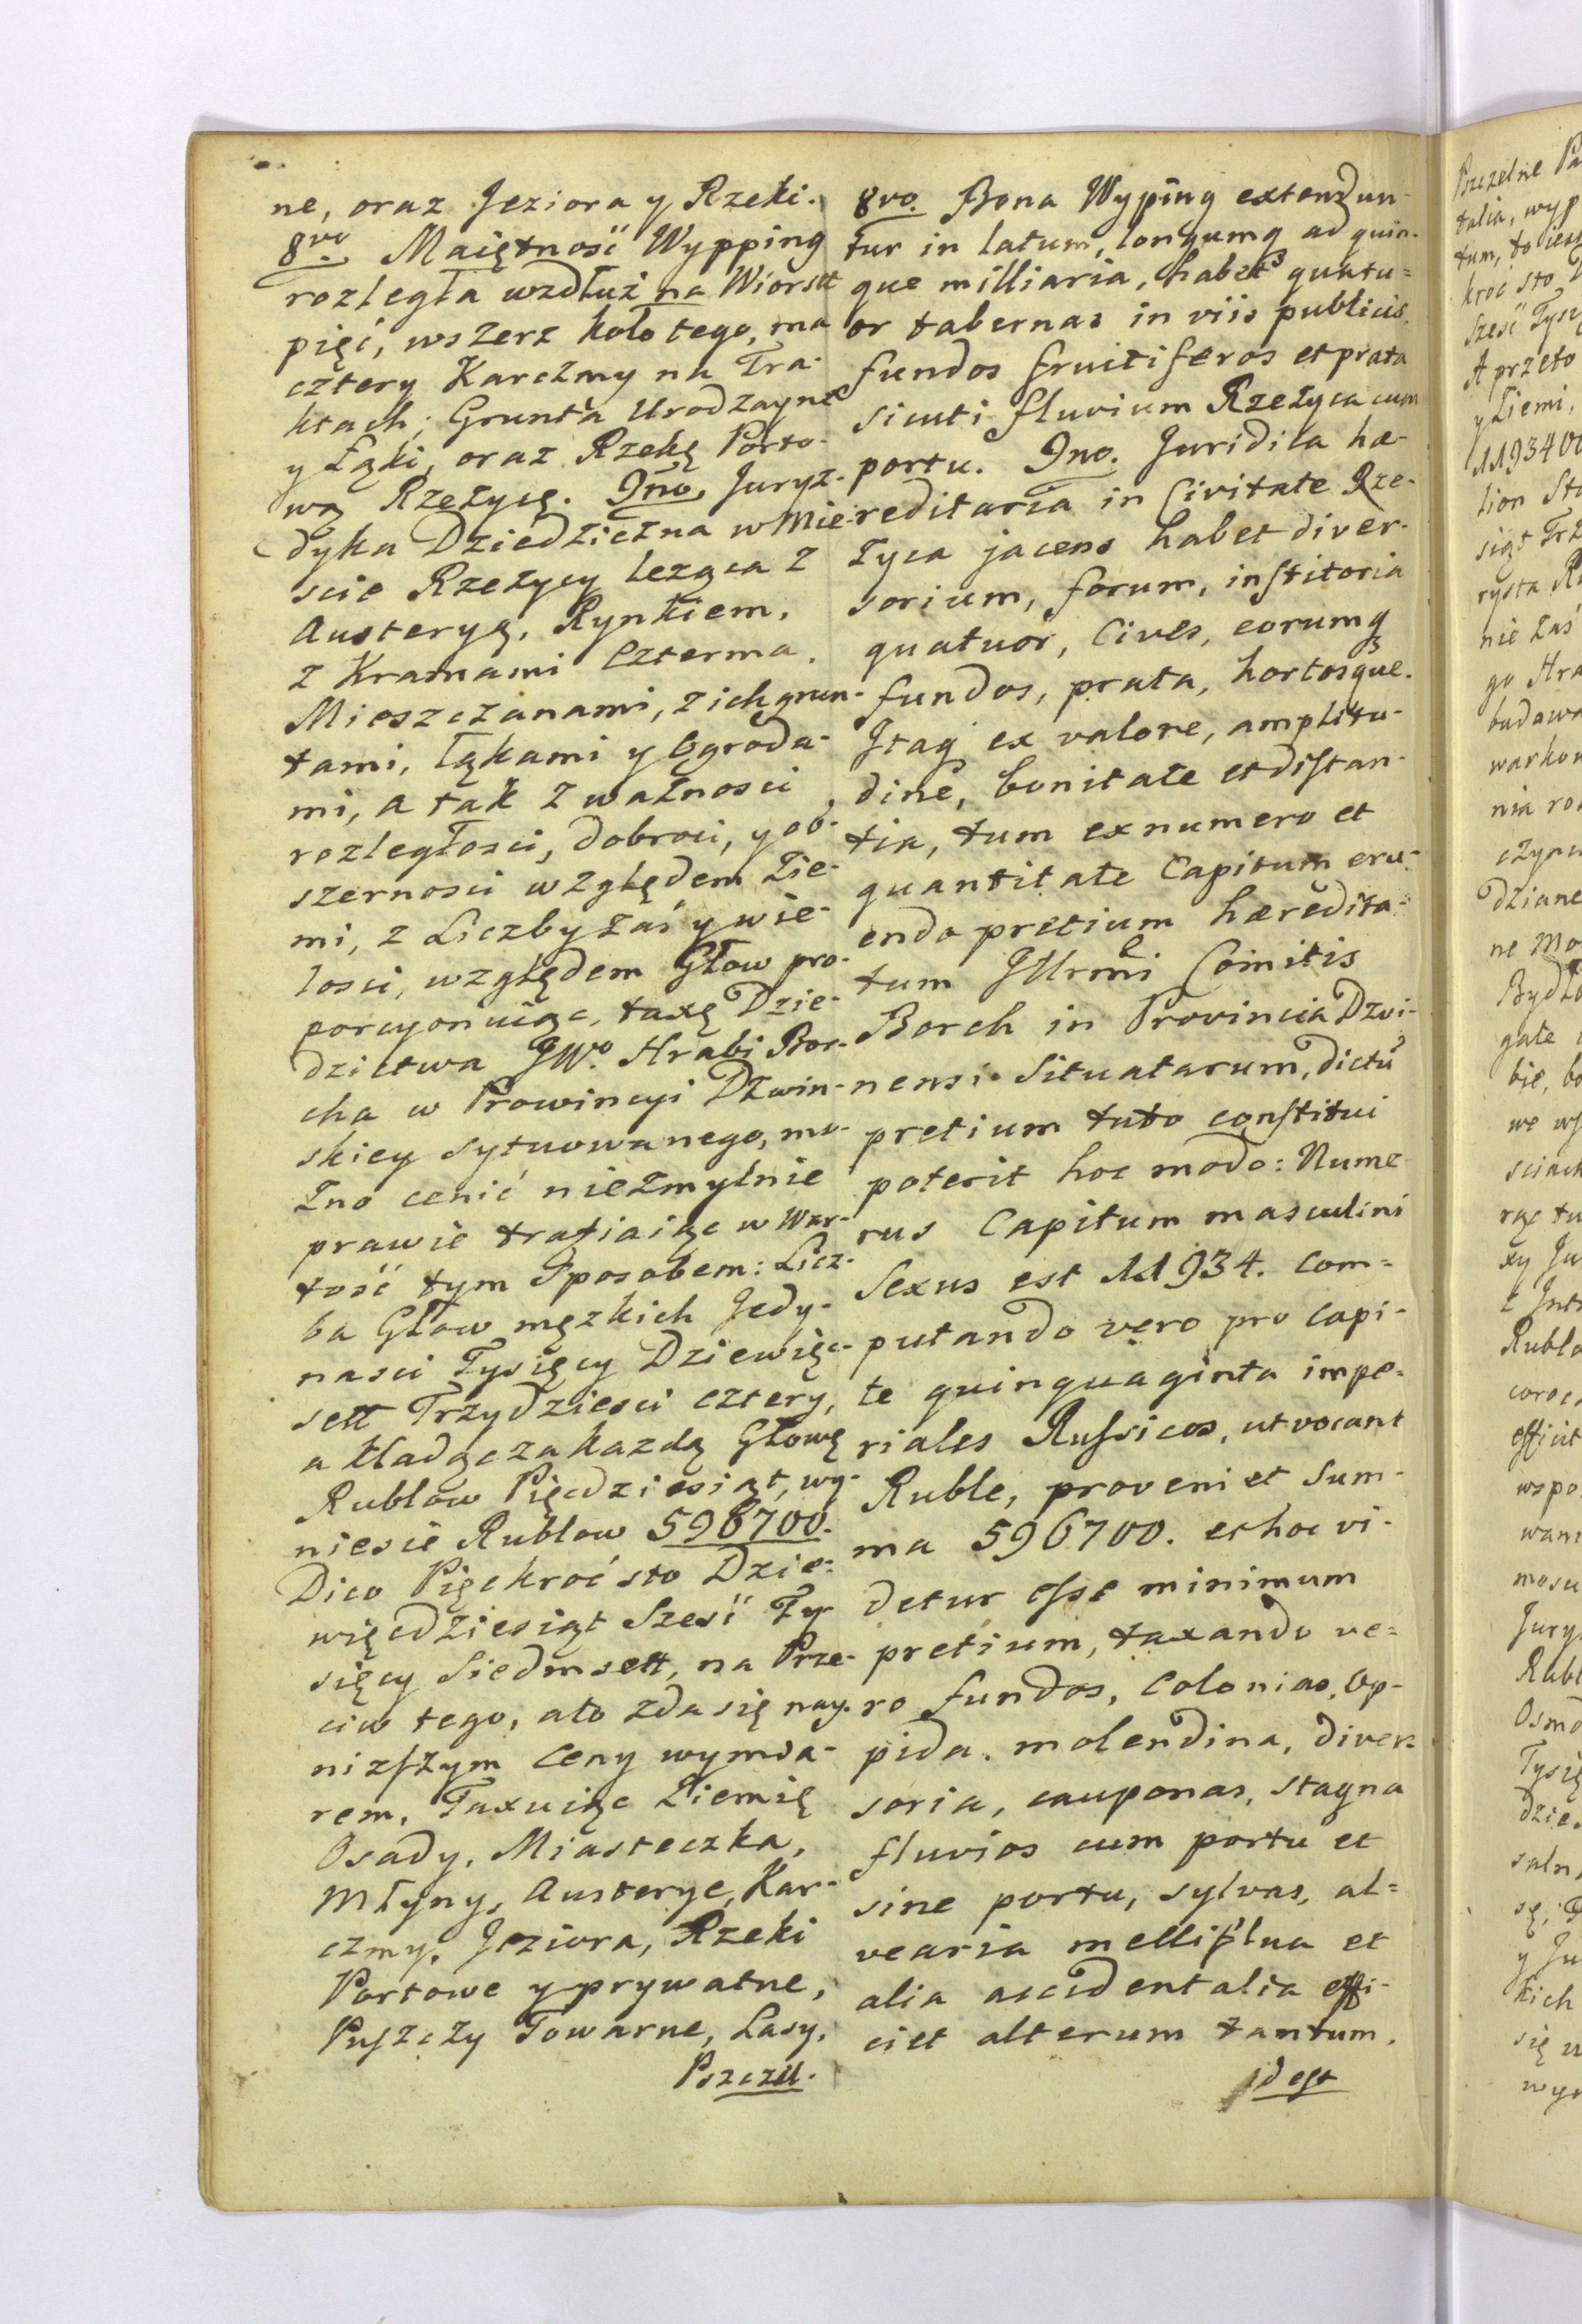 ne, oraz Jeziora y Rzeki.
8vo Maiętność Wypping
rozległa wzdłuż na Wiorstt
pięć, wszerz koło tego, ma
cztery Karczmy na Tra-
ktach; Grunta Urodzayne
y Łąki, oraz Rzekę Porto-
wą Rzeżycę. 9no. Juryz-
dyka Dziedziczna w Mie-
scie Rzeżycy leżąca z
Austeryą, Rynkiem,
z Kramami Czterma,
Mieszczanami, z ich grun-
tami, łąkami y Ogroda-
mi, a tak z ważnosci,
rozległosci, dobroci, y ob-
szernosci względem Zie-
mi, z Liczby zaś y wie-
losci, względem Głow pro-
porcyonuiąc, taxę Dzie-
dzictwa JWo. Hrabi Bor-
cha w Prowincyi Dzwin-
skiey sytuowanego, mo-
żno cenić niezmyłnie
prawie trafiaiąc w War-
tość tym Sposobem: Licz-
ba Głow męzkich Jedy-
nasci Tysięcy Dziewięc-
sett Trzydziesci cztery,
a kładąc za kazdą Głowę
Rublow Pięcdziesiąt, wy-
niesie Rublow 596700.
Dico Pięckroć sto Dzie-
więcdziesiąt Sześć Ty-
sięcy Siedmsett, na Prze-
ciw tego, ato zda się nay-
nizszym Ceny wymia-
rem, Taxuiąc Ziemię
Osady, Miasteczka,
Młyny, Austerye, Kar-
czmy, Jeziora, Rzeki
Portowe y prywatne,
Puszczy Towarne, Lasy,
Pszczel-
8vo. Bona Wyping extendun-
tur in latum, longumq ad quin-
que milliaria, habent quatu-
or tabernas in viis publicis,
fundos fruitiferos et prata
sicuti fluvium Rzeżyca cum
portu. 9no. Juridica hæ-
reditaria in Civitate Rze-
życa jacens habet diver-
sorium, forum, institoria
quatuor, Cives, eorumq
fundos, prata, hortosque.
Itaq ex valore, amplitu-
dine, bonitate et distan-
tia, tum ex numero et
quantitate Capitum eru-
endo pretium hæredita-
tum Illrmi Comitis
Borch in Provincia Dzwi-
nensi Situatarum, dictu
pretium tuto constitui
poterit hoc modo: Nume-
rus Capitum masculini
Sexus est 11934. Com-
putando vero pro Capi-
te quinquaginta impe-
riales Russicos, ut vocant
Ruble, proveniet Sum-
ma 596700. et hoc vi-
detur esse minimum
pretium, taxando ve-
ro fundos, Colonias, Op-
pida, molendina, diver-
soria, cauponas, stagna
fluvios cum portu et
sine portu, sylvas, al-
vearia melliflua et
alia accidentalia effi-
ciet alterum tantum.
id est
Pszczelne
talia, wyp
tum, to iest
kroć sto
Sześć Tys
A przeto
y Ziemi,
1193400
lion Sto
siąt Trz
rysta
nie zaś
go Hra
budowa
warkow
nia
dziane
ne
Bydło
gate
bie,
we
sciach
Rublo
effici
wspo
Jury
Rubl
Osmd
Tysię
dzies
y Ju
kich
się